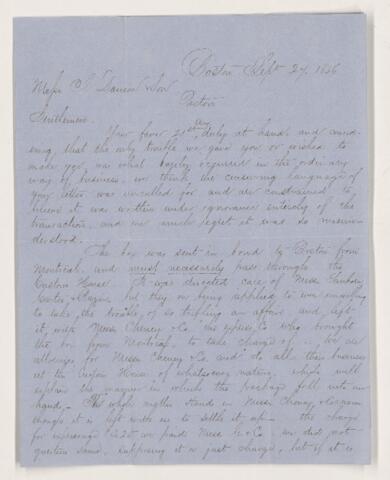 Boston Sept 27. 1856
Messrs S. Dawson Son
Boston
Gentlemen.
Your favor 21st duly at hand, and
that the only trouble we gave you or wished to
make you, was what happily occurred in the ordinary
way of business. we think the censuring language of
your letter was uncalled for and are constrained to
believe it was written under ignorance entirely of the
transaction, and we much regret it was so misun-
derstood.
The box was sent in bond by Boston from
Montreal, and must necessarily pass through the
Custom House. It was directed care of Messrs
but they on being applied to was unwilling
to take the trouble of so trifling an affair and left
it with Messrs Cheney & Co. the express Co who brought
the box from Montreal to take charge of. We are
for Messrs Cheney & Co. and do all their business
at the Custom House of whatsoever nature. which will
explain the manner in which the package fell into our
hands. The whole matter stands in Messrs Cheney & Company
charge & is left with us to settle it up. the charge
for expressage 2.25 we paid Messrs C & Co we did not
question same, supposing it a just charge, but if it is